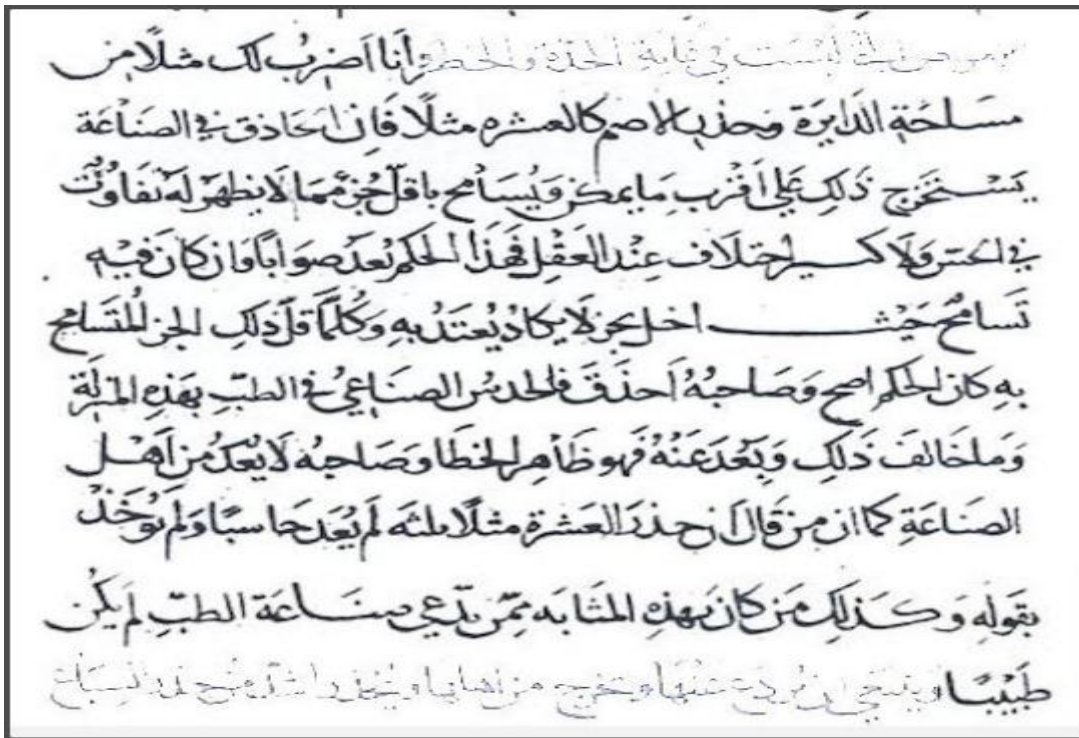 في غاية الحدة والخطر وأنا أضرب لك مثلا من
مساحة الدايرة وجذر الاصم كالعشره مثلا فان الحاذق في الصناعة
يستخرج ذلك على أقرب ما يمكن ويسامح باقل جزء مما لا يظهر له تفاوت
في الحس ولا كسير اختلاف عند العقل فهذا الحكم يعد صوابا وان كان فيه
تسامح حيث اخل بجز لا يكاد يعتد به وكلما قل ذلك الجز المتسامح
به كان الحكم اصح وصاحبه أحذق فالحدس الصناعي في الطب بهذه المنزلة
وما خالف ذلك وبعد عنه فهو ظاهر الخطا وصاحبه لا يعد من أهل
الصناعة كما ان من قال أن جذر العشرة مثلا ثلثه لم يعد حاسبا ولم يؤخذ
بقوله وكذلك من كان بهذه المثابه ممن يدعي صناعة الطب لم يكن
طبيبا وينبغي ان يردع عنها ويخرج من اهلها ويحذر اشد من حذر السباع